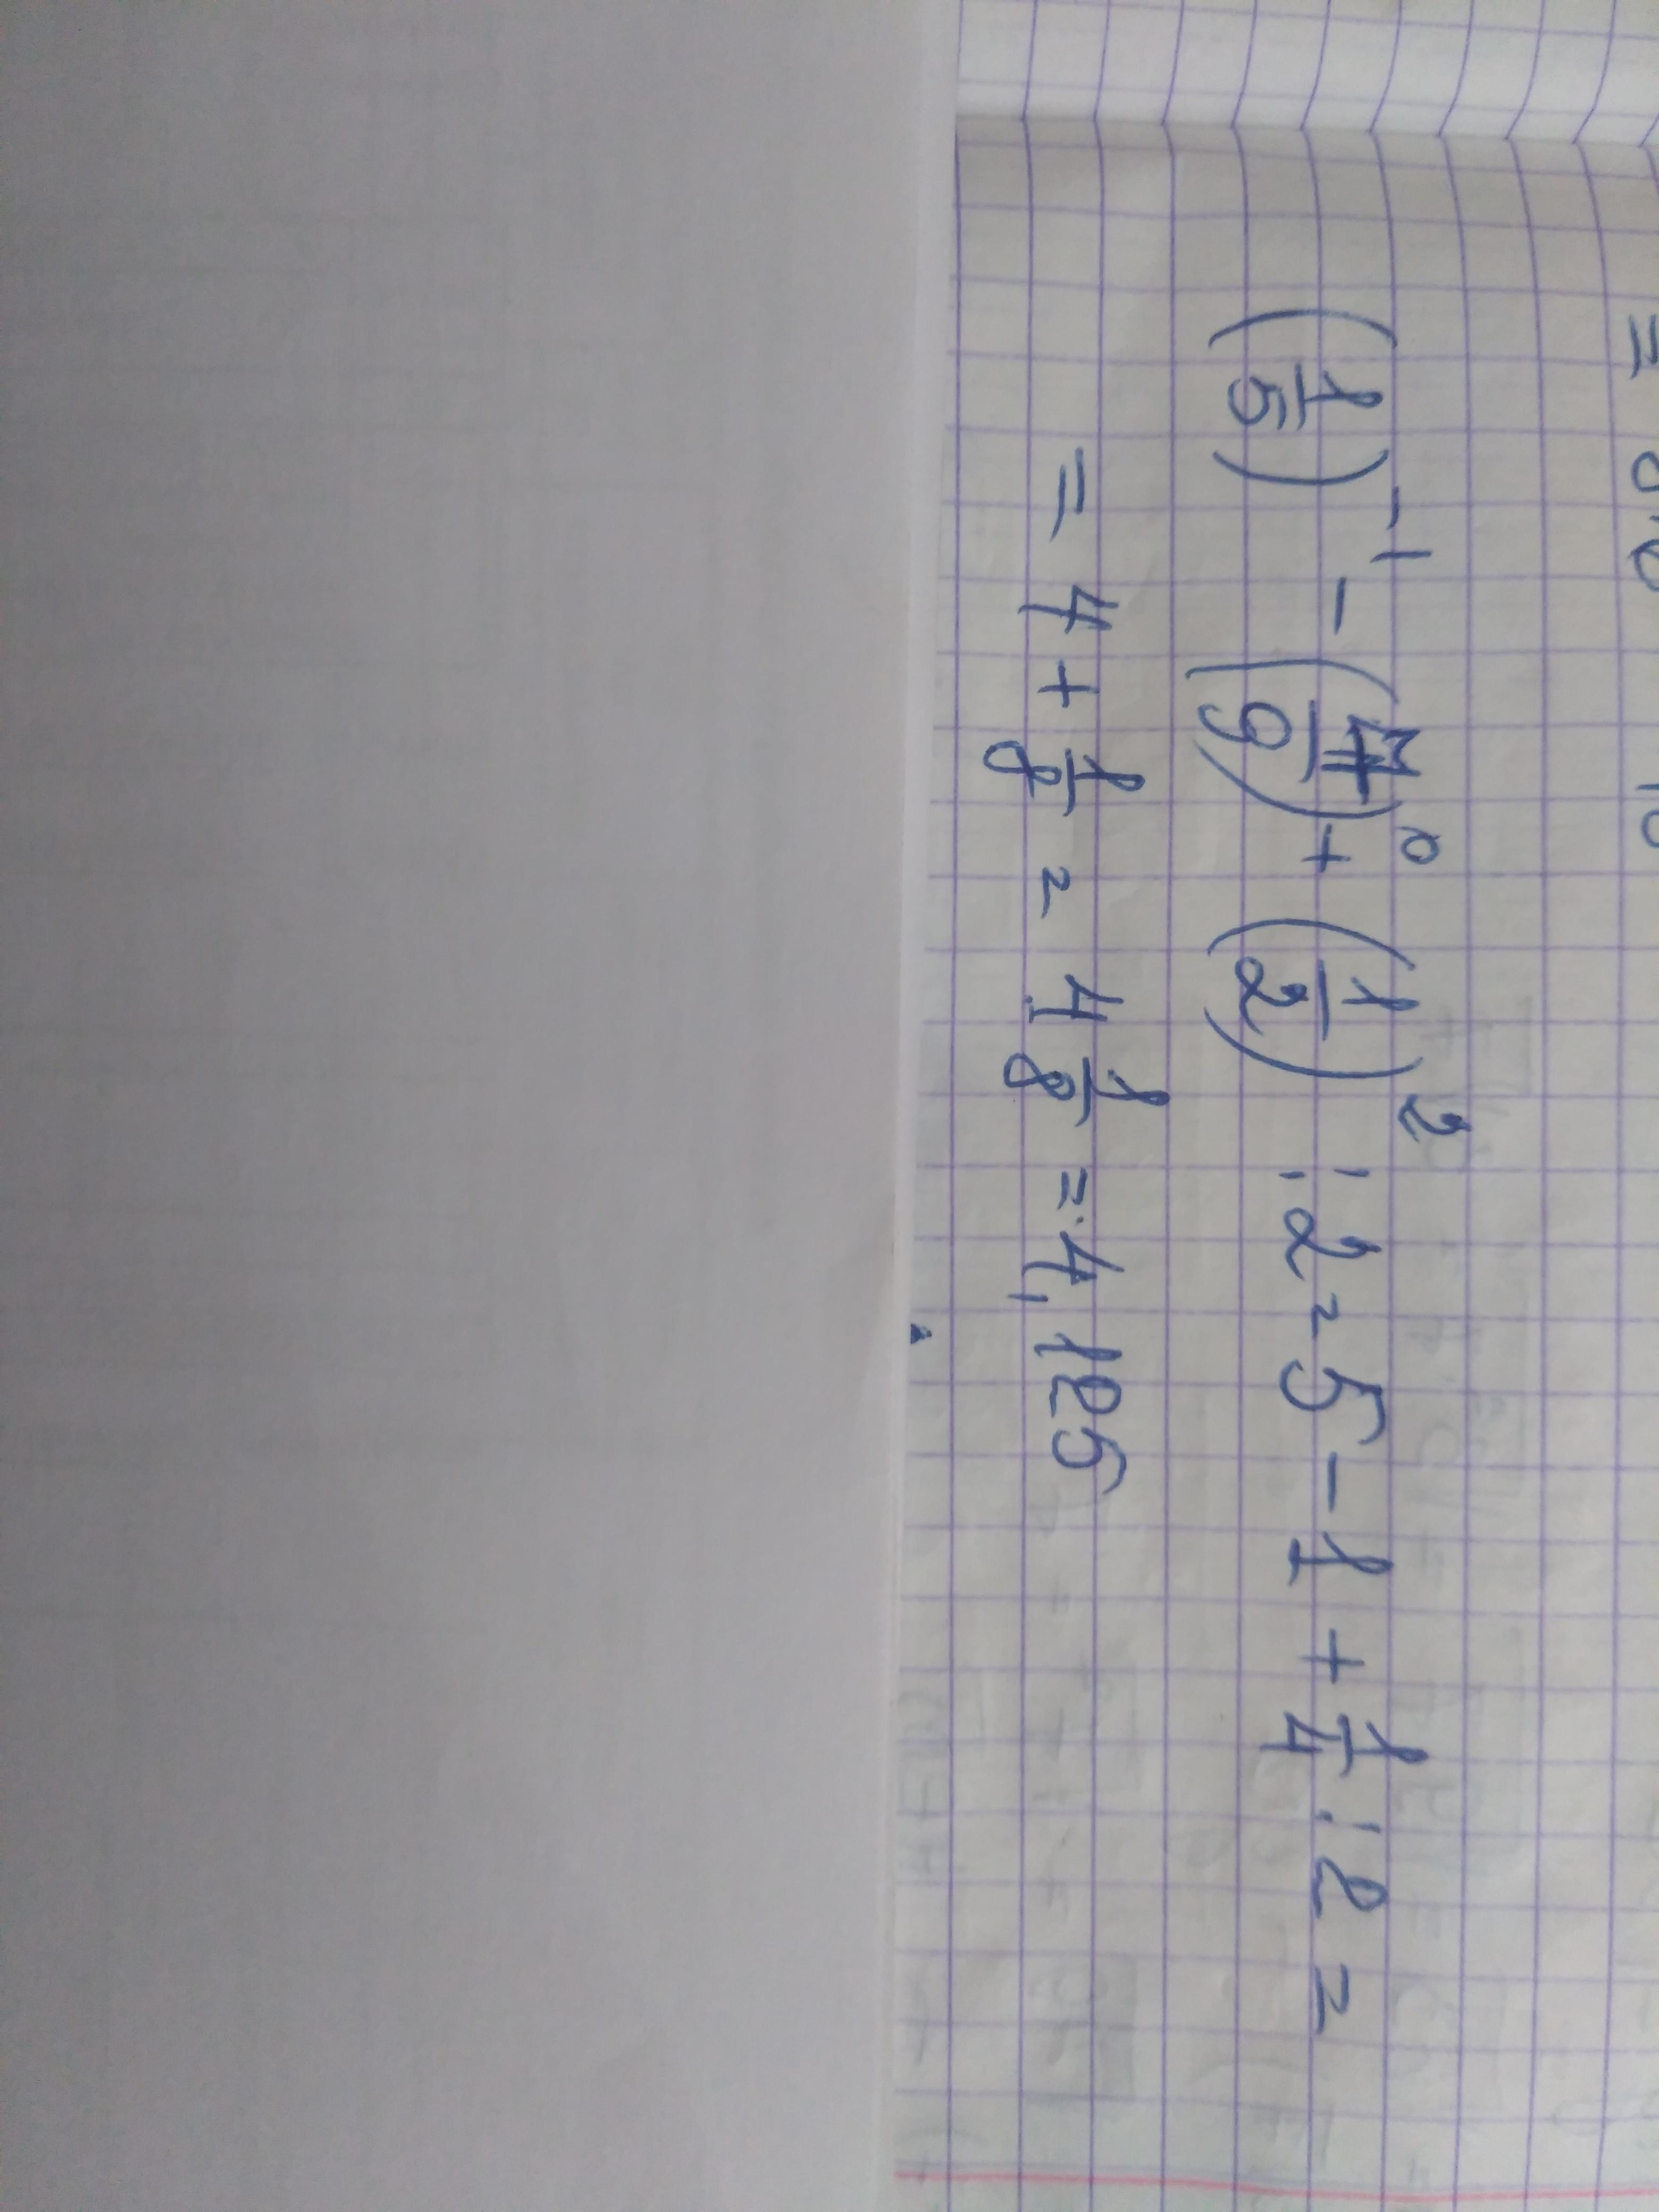 (1/5)^-1 - (/9)^0 + (1/2)^2 : 2 = 5 - 1 + 1/4 : 2 =
= 4 + 1/8 = 4 1/8 = 4,125